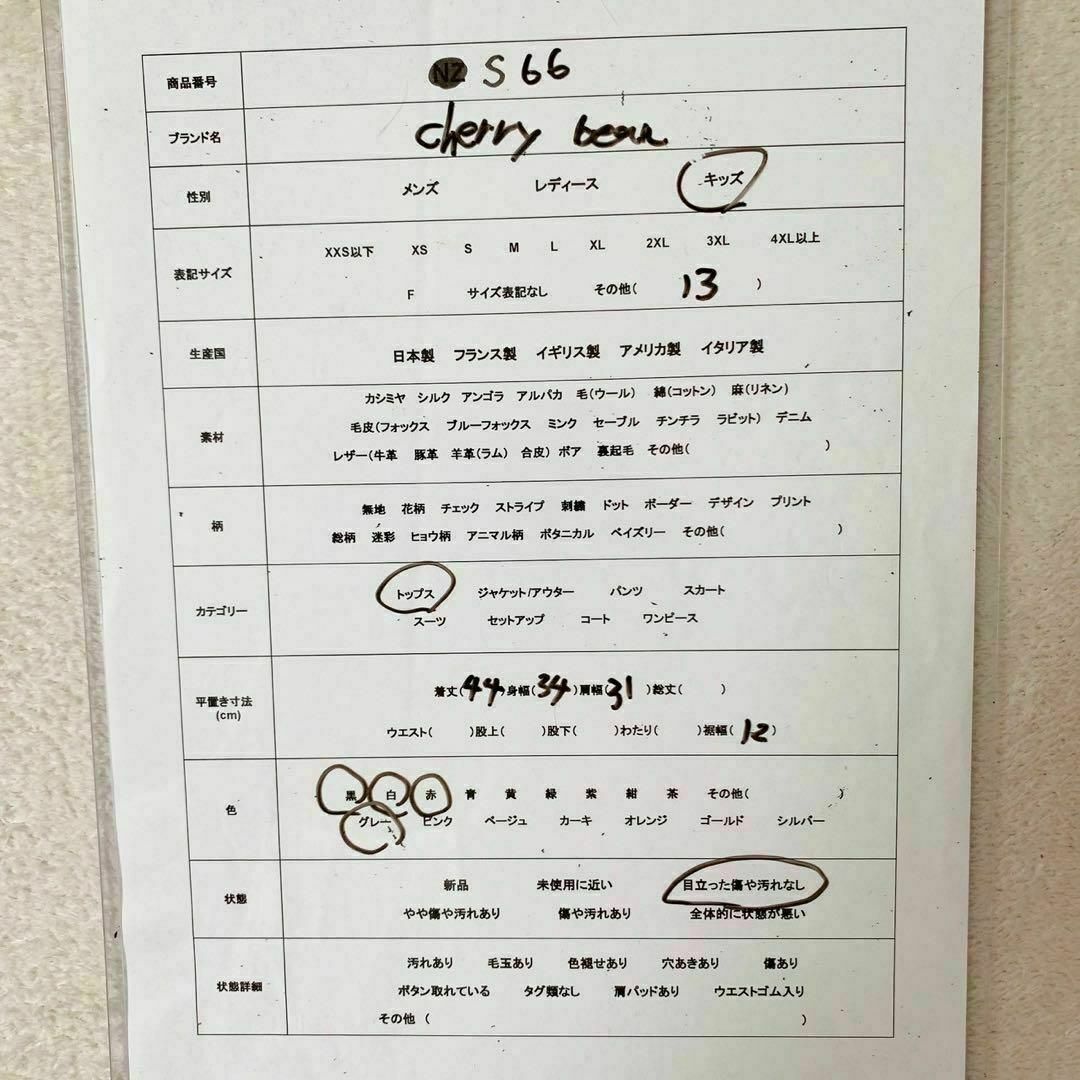 商品番号 NZ S 66
ブランド名 cherry bear
性別 メンズ レディース キッズ
XXS以下 XS S M L XL 2XL 3XL 4XL以上
表記サイズ
F サイズ表記なし その他( 13 )
生産国 日本製 フランス製 イギリス製 アメリカ製 イタリア製
カシミヤ シルク アンゴラ アルパカ 毛(ウール) 綿(コットン) 麻(リネン)
毛皮(フォックス ブルーフォックス ミンク セーブル チンチラ ラビット) デニム
素材
レザー(牛革 豚革 羊革(ラム) 合皮) ボア 裏起毛 その他( )
無地 花柄 チェック ストライプ 刺繍 ドット ボーダー デザイン プリント
柄
総柄 迷彩 ヒョウ柄 アニマル柄 ボタニカル ペイズリー その他( )
トップス ジャケット/アウター パンツ スカート
カテゴリー
スーツ セットアップ コート ワンピース
着丈(44)身幅(34)肩幅(31)総丈( )
平置き寸法
(cm)
ウエスト( )股上( )股下( )わたり( )裾幅(12)
黒 白 赤 青 黄 緑 紫 紺 茶 その他( )
色
グレー ピンク ベージュ カーキ オレンジ ゴールド シルバー
新品 未使用に近い 目立った傷や汚れなし
状態
やや傷や汚れあり 傷や汚れあり 全体的に状態が悪い
汚れあり 毛玉あり 色褪せあり 穴あきあり 傷あり
状態詳細
ボタン取れている タグ類なし 肩パッドあり ウエストゴム入り
その他 ( )